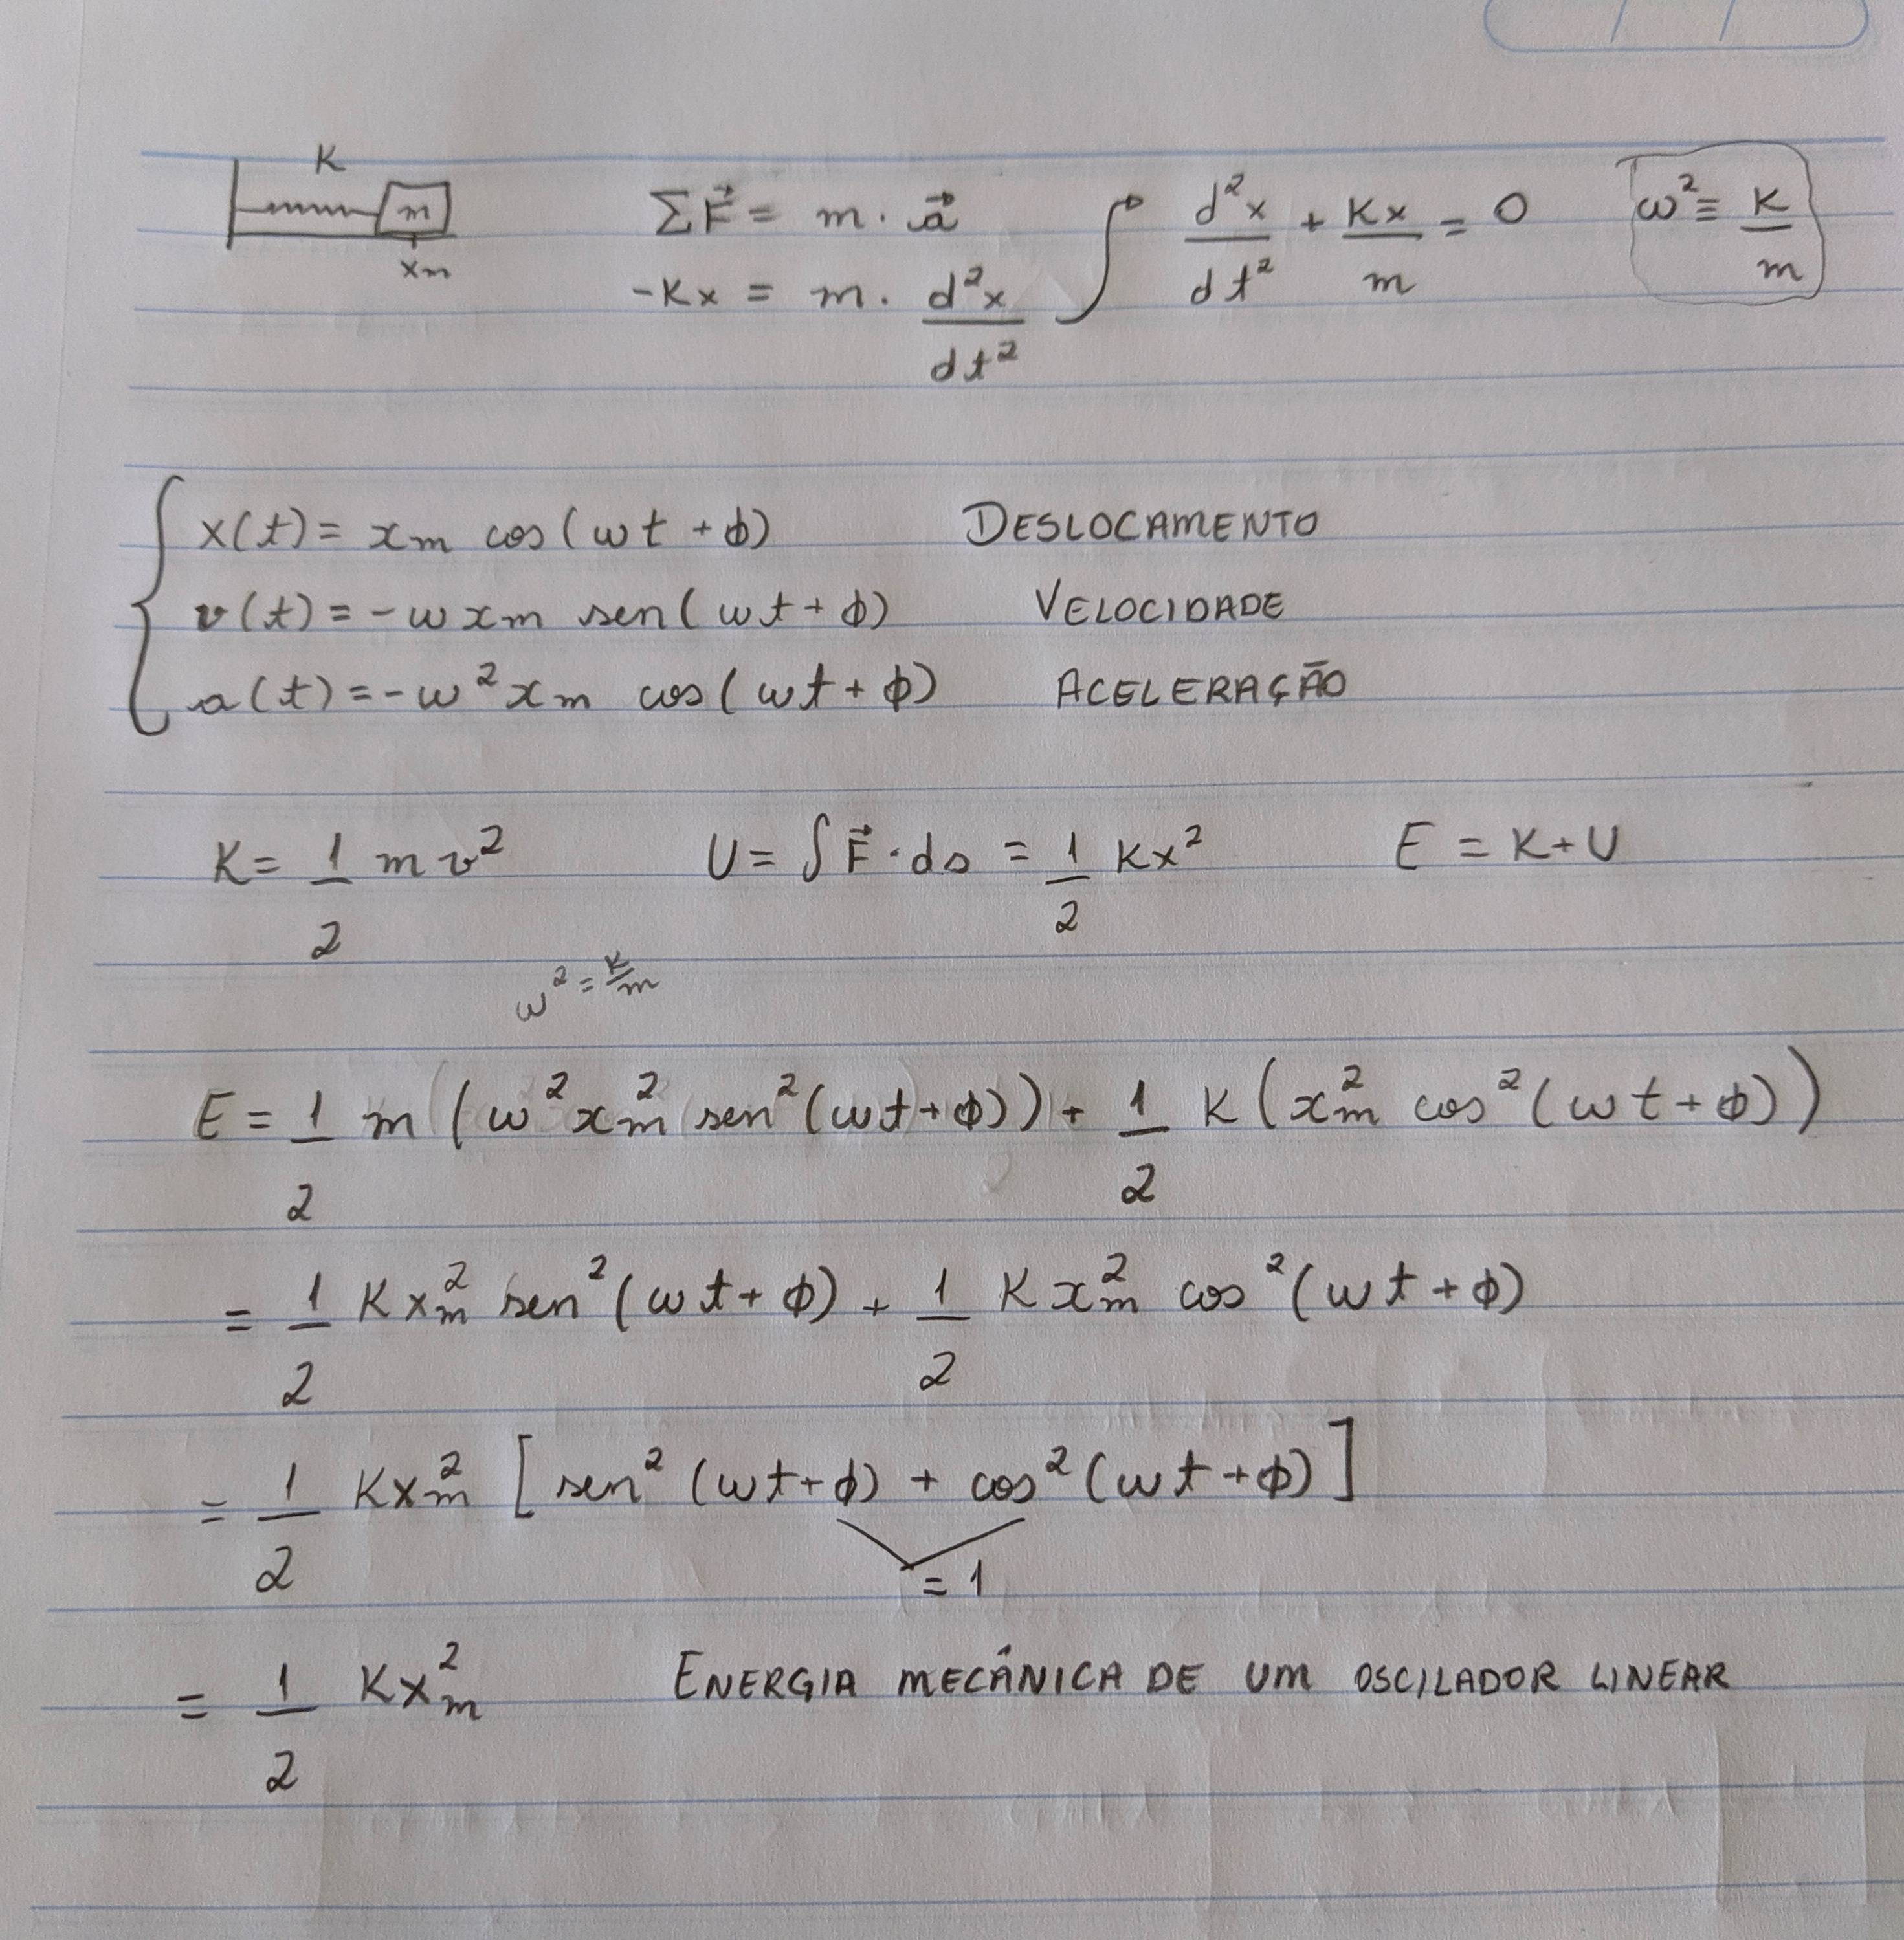 K
m
xm
ΣF⃗ = m · a⃗
-Kx = m · d²x/dt²
d²x/dt² + Kx/m = 0
ω² ≡ K/m
x(t) = xm cos(ωt + ϕ) DESLOCAMENTO
v(t) = -ωxm sen(ωt + ϕ) VELOCIDADE
a(t) = -ω²xm cos(ωt + ϕ) ACELERAÇÃO
K = 1/2 mv² U = ∫F⃗·ds = 1/2 Kx² E = K+U
ω² = K/m
E = 1/2 m (ω²xm² sen²(ωt+ϕ)) + 1/2 K(xm² cos²(ωt+ϕ))
= 1/2 Kxm² sen²(ωt+ϕ) + 1/2 Kxm² cos²(ωt+ϕ)
= 1/2 Kxm² [sen²(ωt+ϕ) + cos²(ωt+ϕ)]
= 1
= 1/2 Kxm² ENERGIA MECÂNICA DE UM OSCILADOR LINEAR